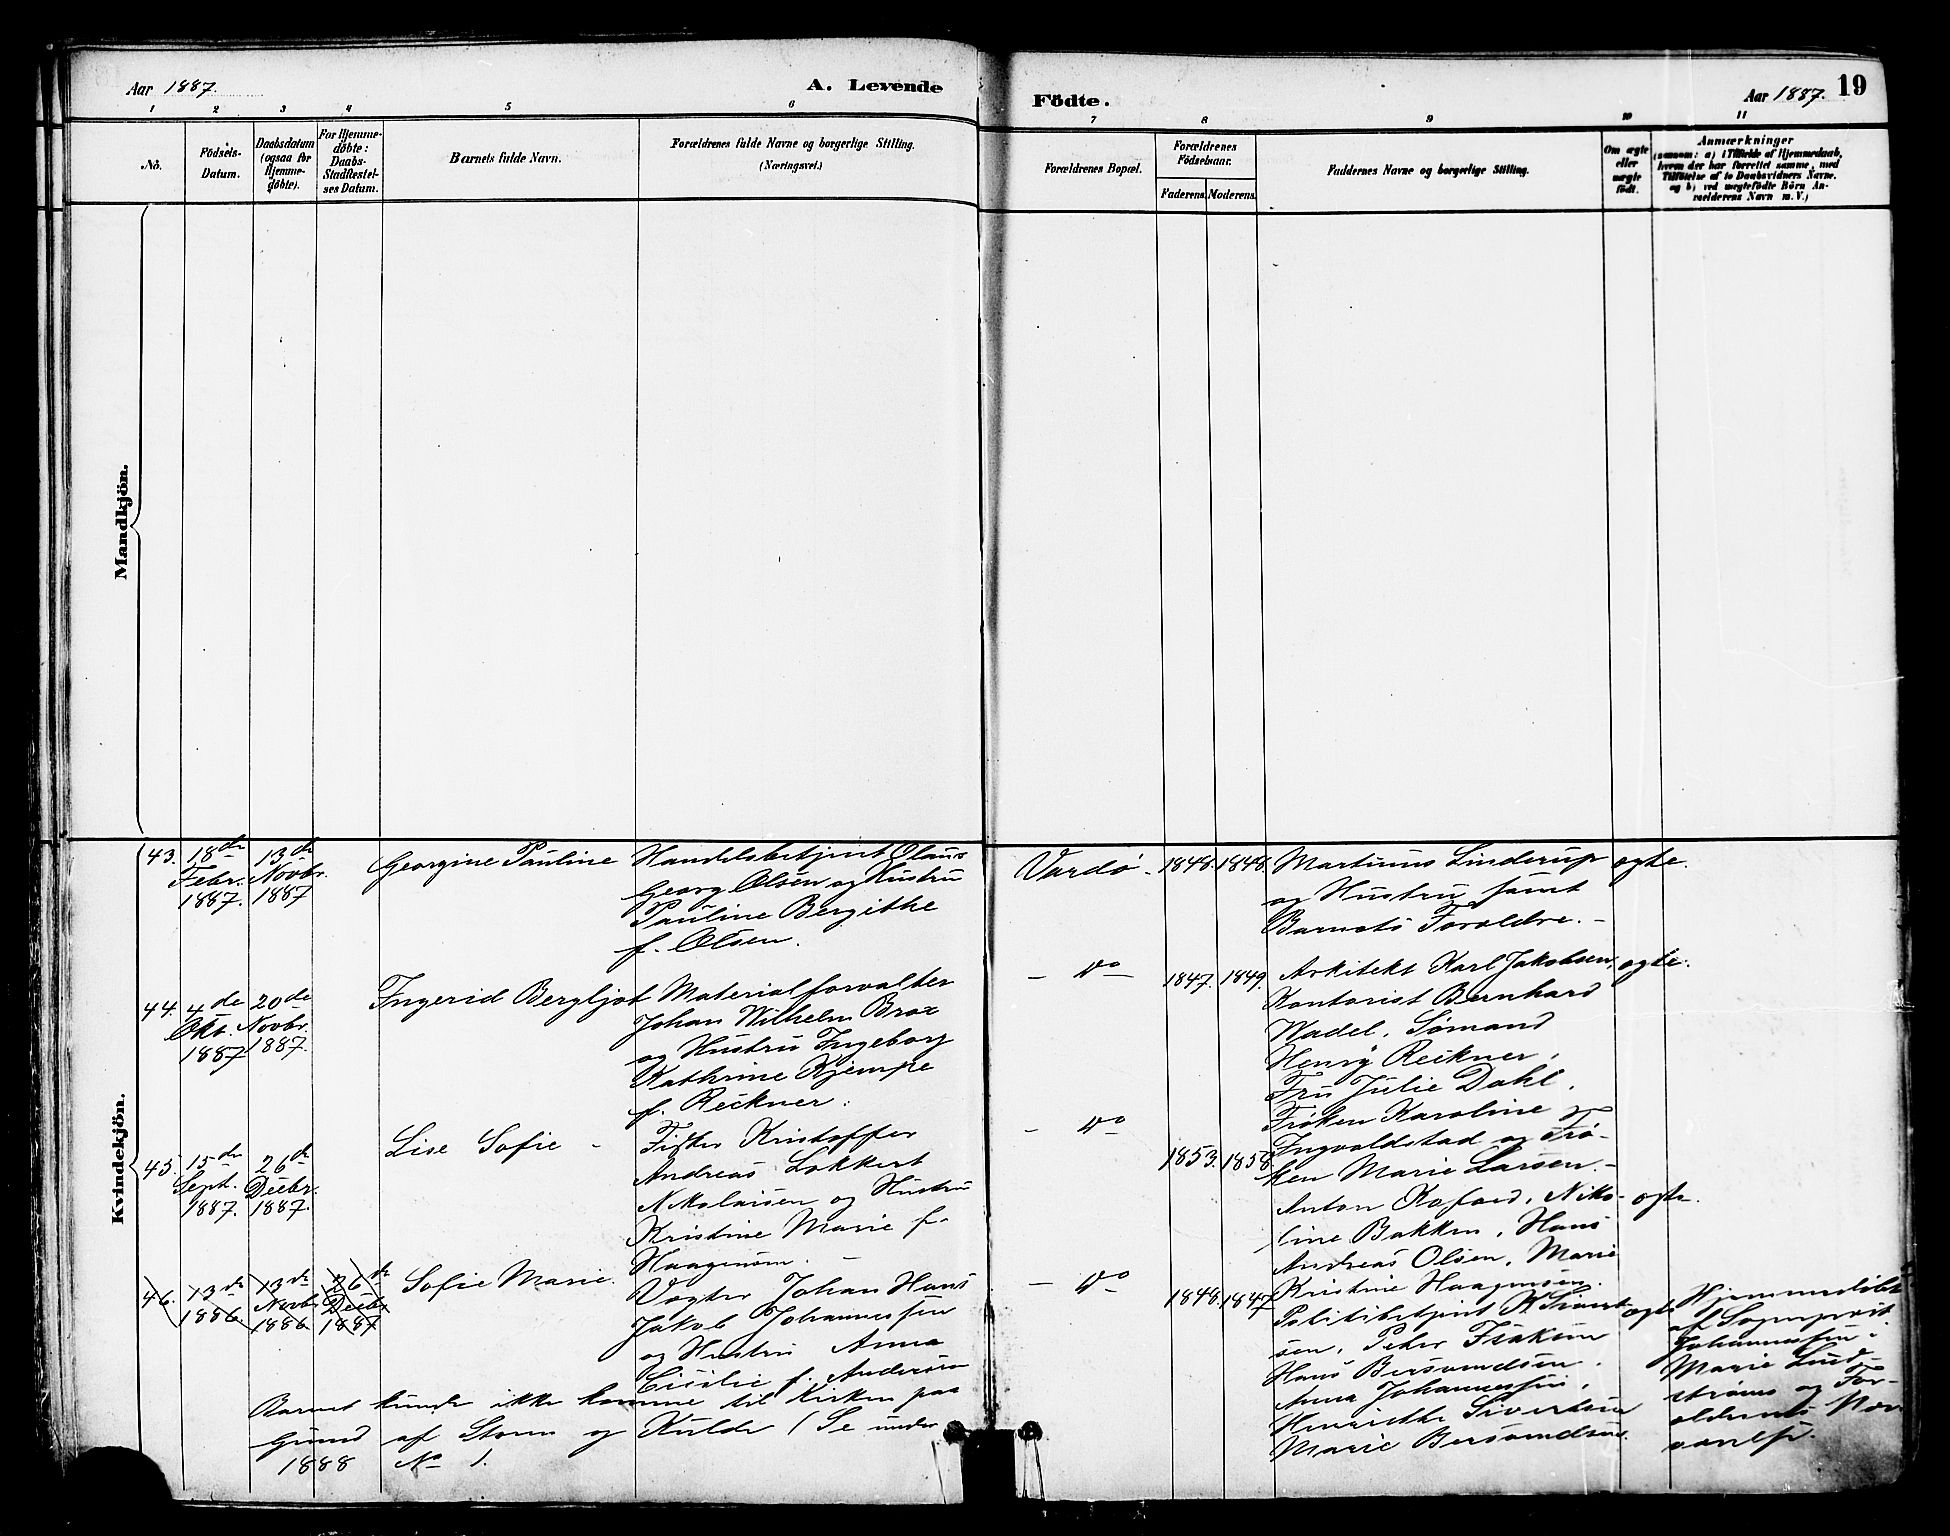 Aar 1887.
A. Levende
Födte.
Aar 1887.
19
1 2 3 4 5 6 7 8 9 10 11
No.
Födsels-
Datum.
Daabsdatum
(ogsaa for
Hjemme-
døbte).
For Hjemme-
døbte:
Daabs-
Stadfestel-
ses Datum.
Barnets fulde Navn.
Forældrenes fulde Navne og borgerlige Stilling.
(Næringsvei.)
Forældrenes Bopæl.
Forældrenes
Födselsaar.
Faderens.
Moderens.
Faddernes Navne og borgerlige Stilling.
Om ægte
eller
uægte
födt.
Anmærkninger
(saasom: a) i Tilfælde af Hjemmedaab,
hvem der har forrettet samme, med
Tilföielse af to Daabsvidners Navne,
og b) ved uægtefödte Börn An-
melderens Navn m. V.)
Mandkjön.
Kvindekjön.
43.
18de
Febr.
1887.
13de
Novbr.
1887
Georgine Pauline
Handelsbetjent Olaus
Georg Olsen og Hustru
Pauline Bergithe
f. Olsen.
Vardø
1848.
1848.
Martinus Linderup
og Hustru samt
Barnets Forældre.
ægte.
44.
4de
Okt.
1887
20de
Novbr.
1887.
Ingerid Bergljot
Materialforvalter
Johan Wilhelm Brox
og Hustru Ingeborg
Kathrine Kjempe
f. Reikner.
do
1847.
1849.
Arkitekt Karl Jakobsen,
Kontorist Bernhard
Wadel, Sømand
Henry Reikner,
Fru Julie Dahl,
Frøken Karoline
Ingvaldstad og Frø-
ken Marie Larsen.
ægte.
45.
15de
Sept.
1887.
26de
Decbr.
1887.
Lise Sofie
Fisker Kristoffer
Andreas Lokkert
Nikolaisen og Hustru
Kristine Marie f.
Haagensen.
do
1853.
1858
Anton Kofoed, Niko-
line Bakken, Hans
Andreas Olsen, Marie
Kristine Haagensen.
ægte.
46.
13de
1886.
13de
Novb.
1886
26de
Decbr
1887
Sofie Marie.
Vægter Johan Hans
Jakob Johannessen
og Hustru Anna
Cecilie f. Andersen
do
1848.
1847
Politibetjent K. Sivert-
sen, Peter Isaksen
Hans Bersvendsen,
Anna Johannessen,
Henriette Sivertsen
Marie Bersvendsen.
ægte
Hjemmedøbt
af Sogneprest
Johannessen.
Marie Lind-
strøms og For-
ældrenes Nær-
værelse.
Barnet kunde ikke komme til Kirken paa
Grund af Storm og Kulde (Se under
1888 No 1.